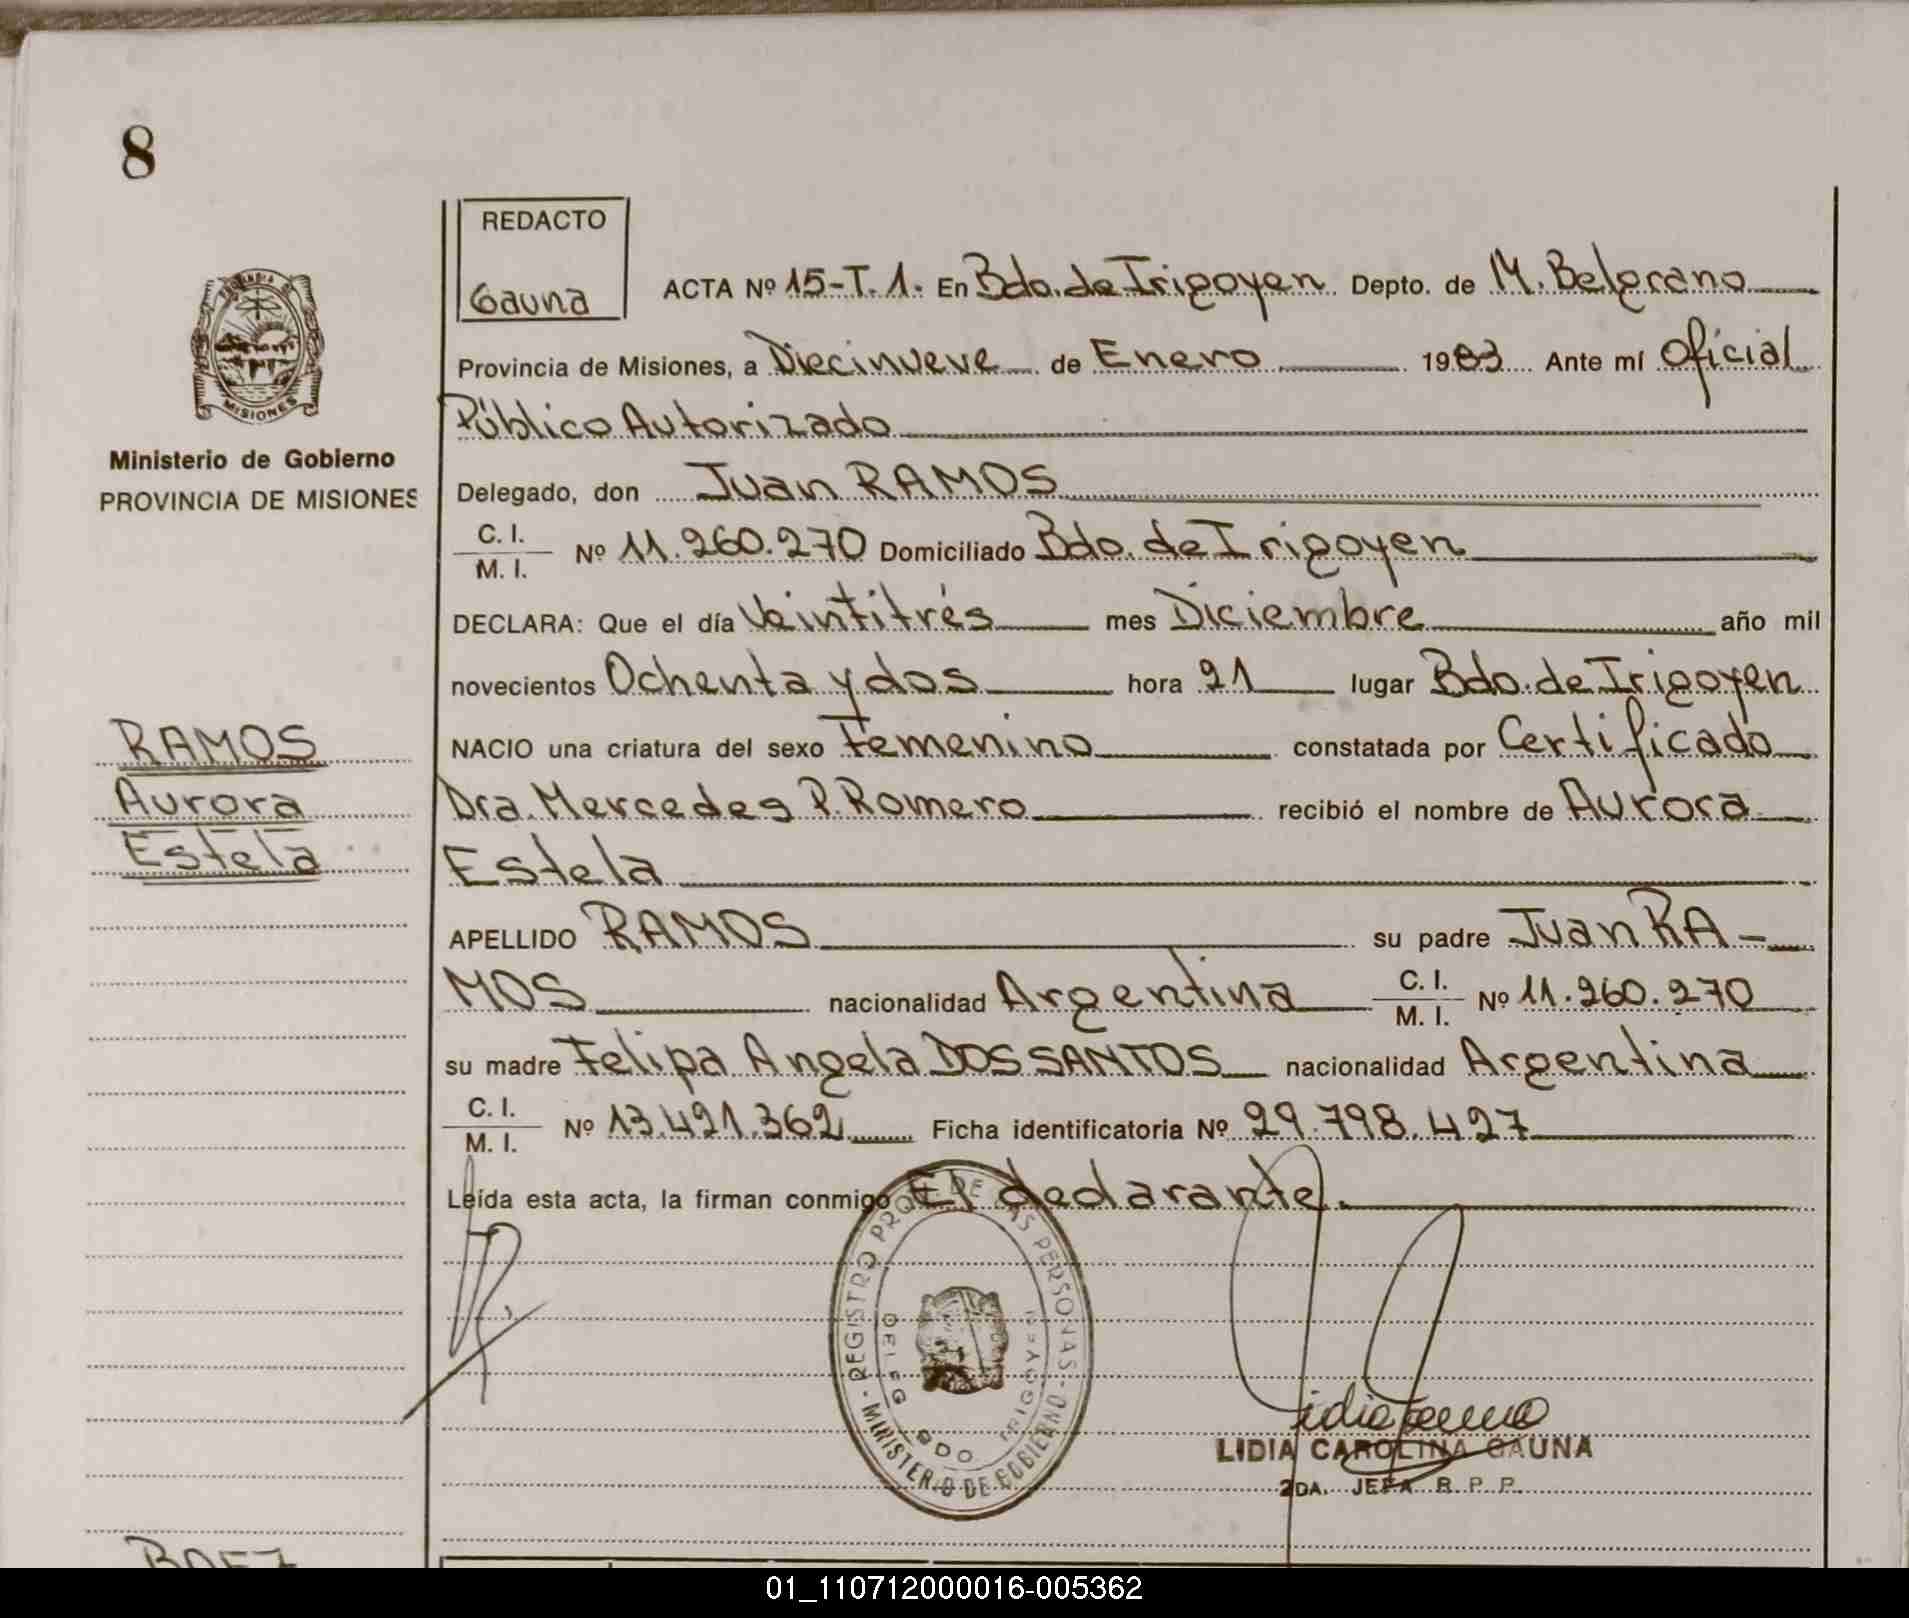 8
REDACTO
Gauna
ACTA Nº 15-T.1. En Bdo. de Irigoyen Depto. de M. Belgrano
Provincia de Misiones, a Diecinueve de Enero 1983 Ante mí Oficial
Público Autorizado
Delegado, don Juan RAMOS
C. I.
M. I. Nº 11.260.270 Domiciliado Bdo. de Irigoyen
DECLARA: Que el día Veintitrés mes Diciembre año mil
novecientos Ochenta y dos hora 21 lugar Bdo. de Irigoyen
NACIO una criatura del sexo Femenino constatada por Certificado
Dra. Mercedes P. Romero recibió el nombre de Aurora
Estela
APELLIDO RAMOS su padre Juan RA-
MOS nacionalidad Argentina C. I. M. I. Nº 11.260.270
su madre Felipa Angela DOS SANTOS nacionalidad Argentina
C. I.
M. I. Nº 13.421.362 Ficha identificatoria Nº 29.798.427
Leída esta acta, la firman conmigo El declarante.
PROVINCIA DE
MISIONES
Ministerio de Gobierno
PROVINCIA DE MISIONES
RAMOS
Aurora
Estela
REGISTRO PROV. DE LAS PERSONAS - MINISTERIO DE GOBIERNO
DELEG. BDO. IRIGOYEN
Lidia Gauna
LIDIA CAROLINA GAUNA
2DA. JEFA R. P. P.
01_110712000016-005362